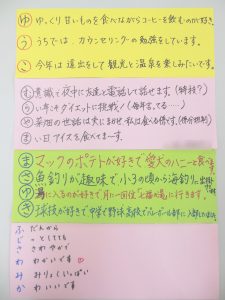 ゆ ゆっくり甘いものを食べながらコーヒーを飲むのが好き。
う うちでは、カウンセリングの勉強をしています。
こ 今年は遠出をして観光と温泉を楽しみたいです。
む 意識と夜中に夫と電話して話せます(特技?)
ら いきこそダイエットに挑戦!(毎年言ってる……)
や 菜園の世話は夫にまかせ、私は食べる係です。
ま い日アイスを食べてまーす。
ま マックのポテトが好きで愛犬のハニーと食べます
さ 魚釣りが趣味で小3の頃から海釣りに
ゆ に入るのが好きで月に一回位 の湯に行きます。
き 球技が好きで中学で野球高校でバレーボール部に入部
ふ だんから
じ っとしてても
さ さわやかで
わ わかいです♡
み みりょくいっぱい
か わいいです